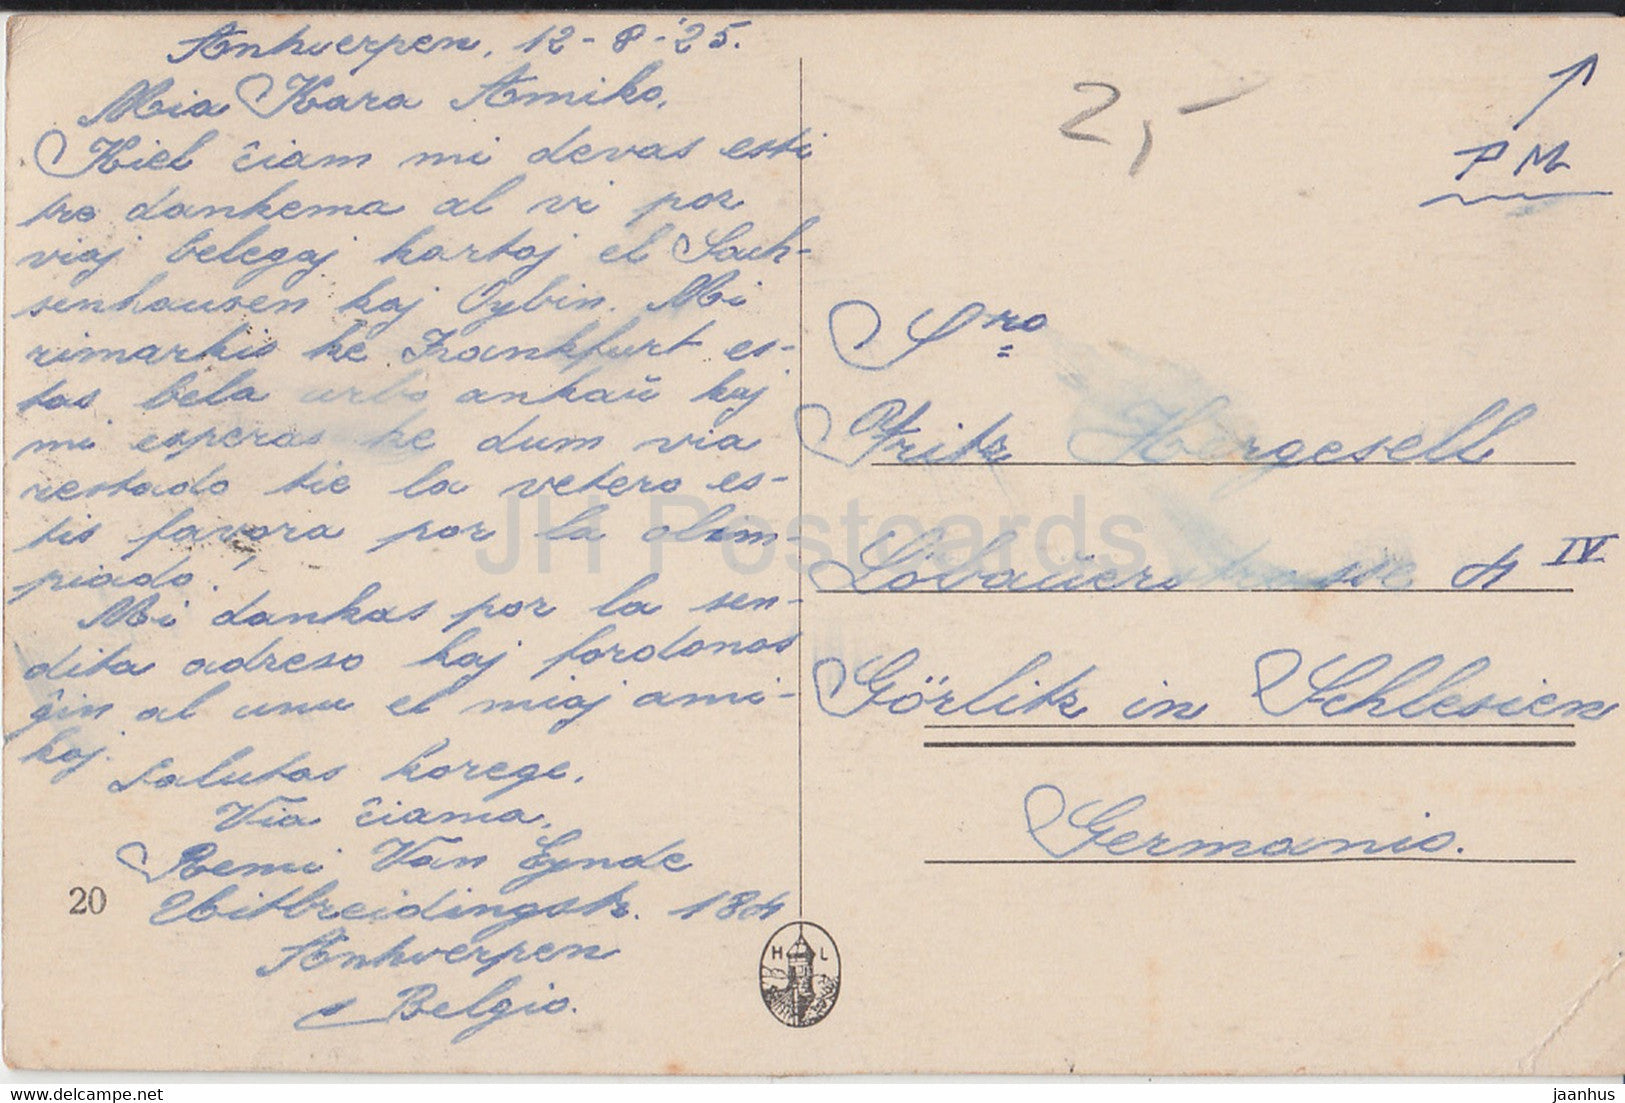 Antwerpen, 12-8-'25.
Mia Kara Amiko,
Kiel ĉiam mi devas esti
tre dankema al vi por
viaj belegaj kartoj el Sach-
senhausen kaj Oybin. Mi
rimarkis ke Frankfurt es-
tas bela urbo ankaŭ kaj
mi esperas ke dum via
restado tie la vetero es-
tis favora por la olim-
piado.
Mi dankas por la sen-
dita adreso kaj fordonos
ĝin al unu el miaj ami-
koj.
Salutas korege.
Via ĉiama,
Remi Van Eynde
Uitbreidingstr. 184
Antwerpen
Belgio.
20
H L
2,-
P M
Sro
Fritz Hergesell
Löbauerstrasse 4 IV
Görlitz in Schlesien
Germanio.
JH Postcards
delcampe.net
jaanhus